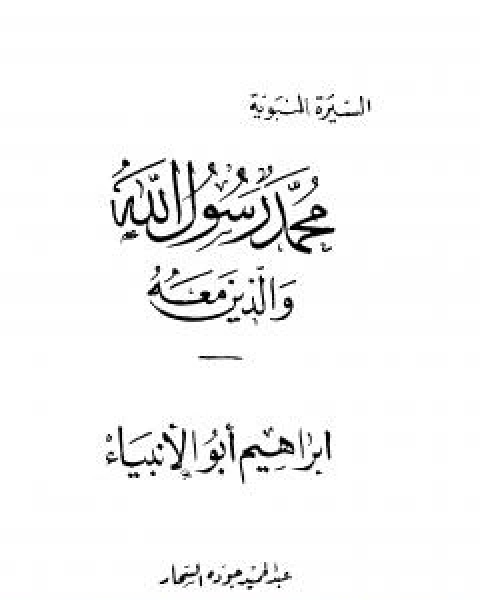 السيرة النبوية
محمد رسول الله
والذين معه
ابراهيم أبو الأنبياء
عبد الحميد جوده السحار